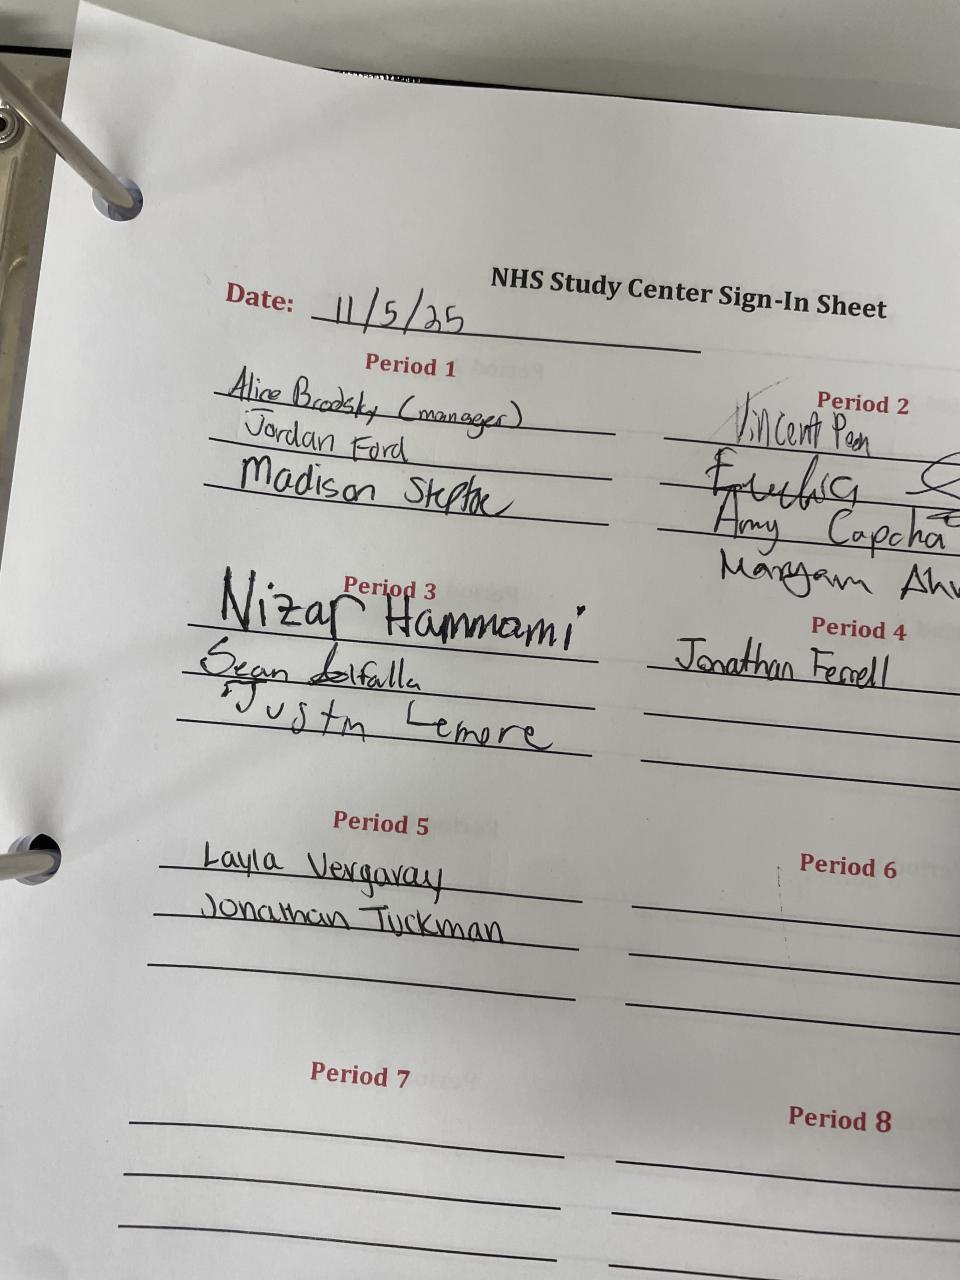 NHS Study Center Sign-In Sheet
Date: 11/5/25
Period 1
Alice Brodsky (manager)
Jordan Ford
Madison Steptoe
Period 2
Vincent
Amy Capcha
Maryam
Period 3
Nizar Hammami
Sean
Justin Lemore
Period 4
Jonathan Ferrell
Period 5
Layla Vergaray
Jonathan Tuckman
Period 6
Period 7
Period 8